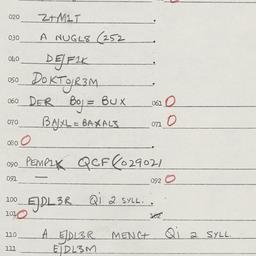 020 Z+M1T
030 A NUGL8 (252
040 DE/F1K
050 DOKTOJR3M
060 DER BOJ = BUX 061 O
070 BAJXL = BAXAL3 071 O
080 O
090 PEMP1K QCF(029021
091 — 092 O
100 EJDL3R Qi 2 SYLL.
101 O
110 A EJDL3R MENG+ Qi 2 SYLL
111 EJDL3M